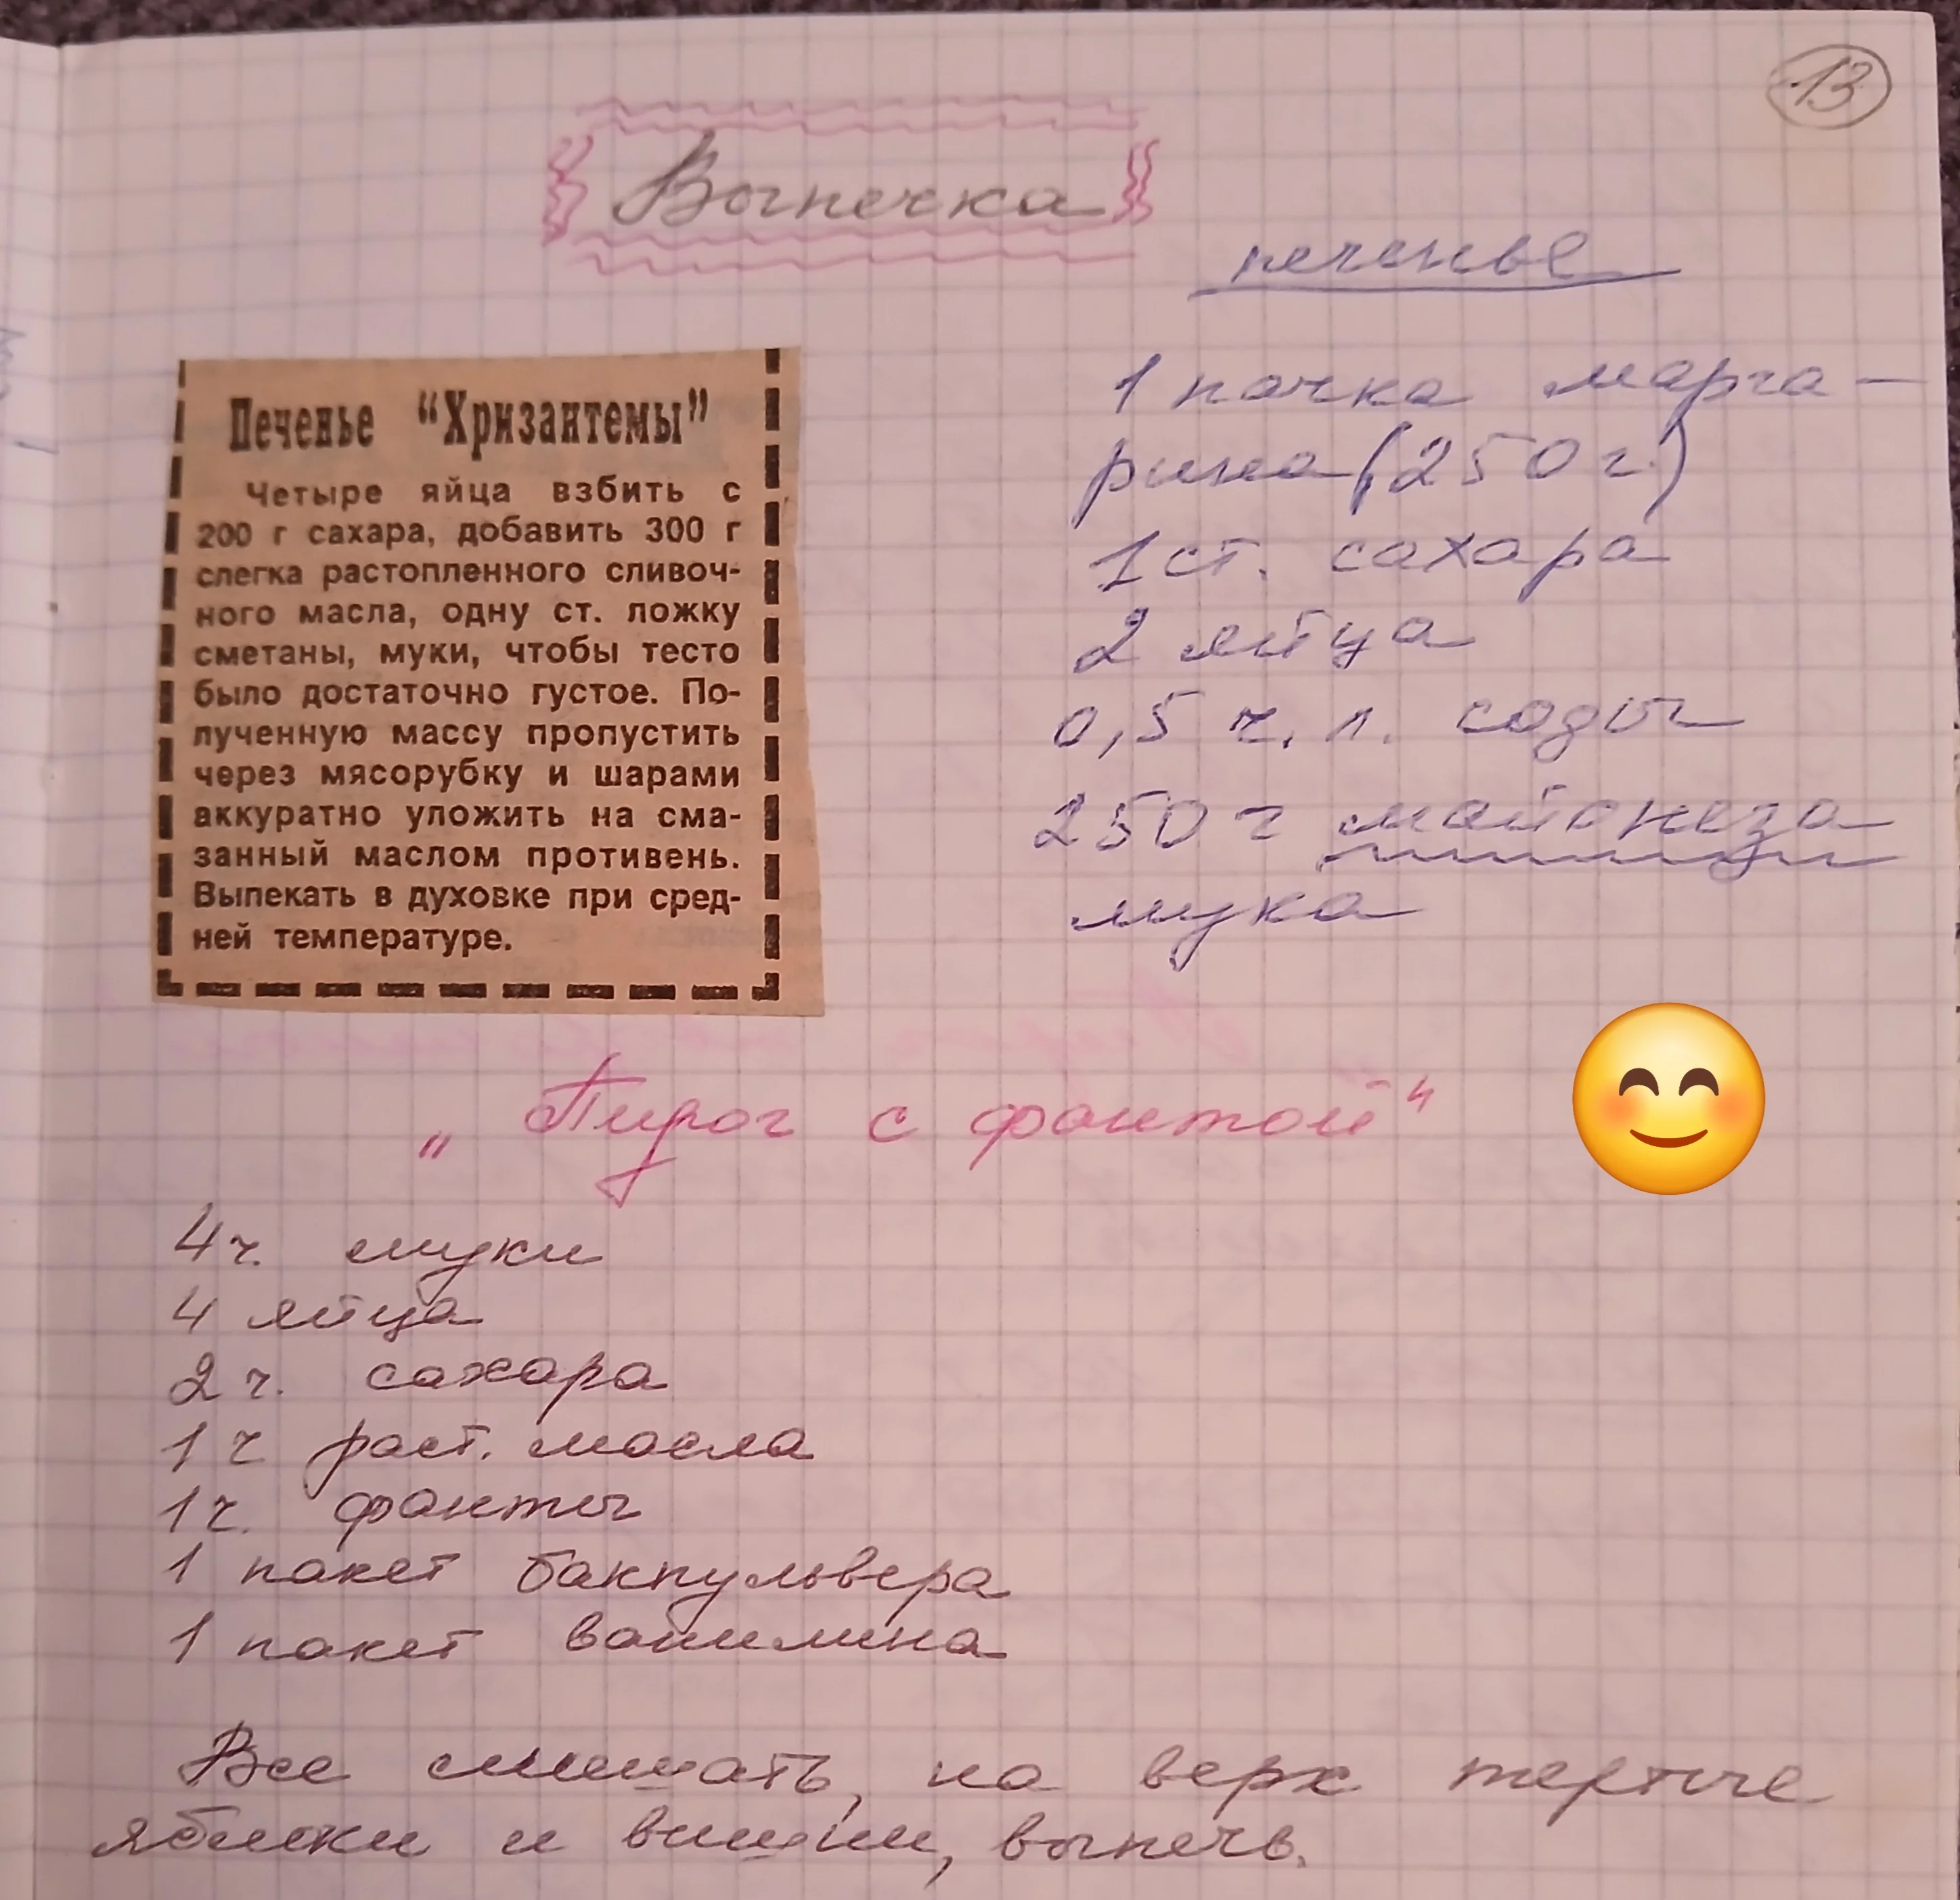 13
Выпечка
печенье
Печенье "Хризантемы"
Четыре яйца взбить с
200 г сахара, добавить 300 г
слегка растопленного сливоч-
ного масла, одну ст. ложку
сметаны, муки, чтобы тесто
было достаточно густое. По-
лученную массу пропустить
через мясорубку и шарами
аккуратно уложить на сма-
занный маслом противень.
Выпекать в духовке при сред-
ней температуре.
1 пачка марга-
рина (250 г.)
1 ст. сахара
2 яйца
0,5 ч. л. соды
250 г майонеза
мука
„Пирог с фантой"
4 ч. муки
4 яйца
2 ч. сахара
1 ч раст. масла
1 ч. фанты
1 пакет бакпульвера
1 пакет ванилина
Все смешать, на верх тертые
яблоки и вишни, выпечь.